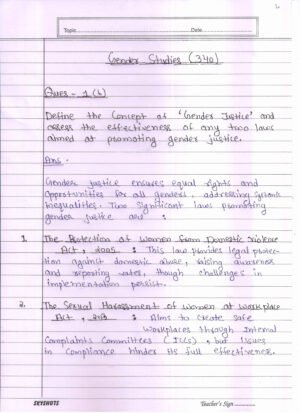 Topic
Date
Gender Studies (340)
Ques - 1 (b)
Define the Concept of 'Gender Justice' and
assess the effectiveness of any two laws
aimed at promoting gender justice.
Ans -
Gender justice ensures equal rights and
opportunities for all genders, addressing systemic
inequalities. Two significant laws promoting
gender justice are :
1. The Protection of Women from Domestic Violence
Act, 2005 : This law provides legal protec-
tion against domestic abuse, raising awareness
and reporting rates, though challenges in
implementation persist.
2. The Sexual Harassment of Women at Workplace
Act, 2013 : Aims to create safe
workplaces through Internal
Complaints Committees (ICCs), but issues
in compliance hinder its full effectiveness.
SKYSHOTS
Teacher's Sign